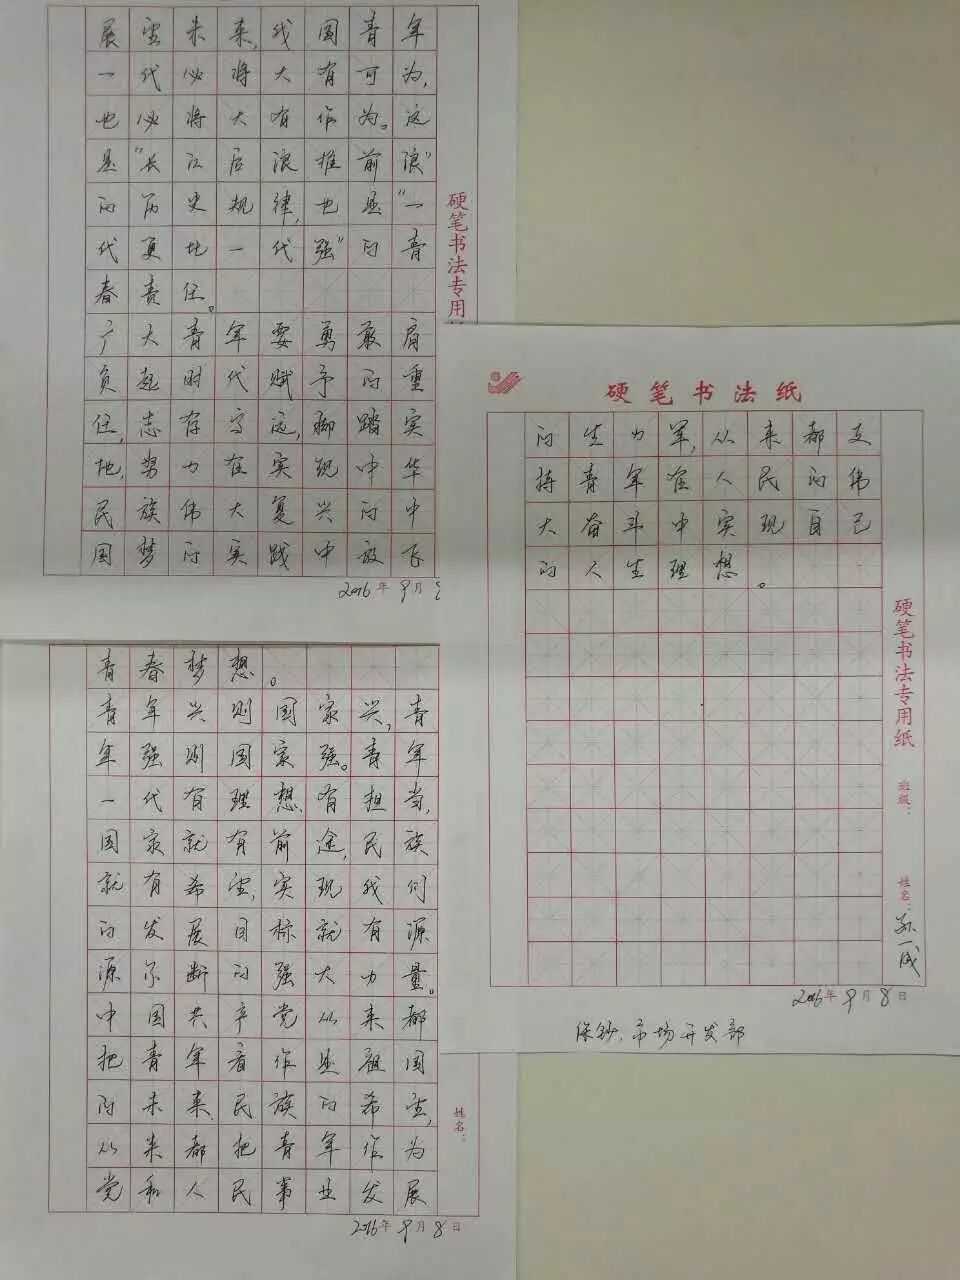 展望未来，我国青年
一代必将大有可为，
也必将大有作为。这
是“长江后浪推前浪”
的历史规律，也是“一
代更比一代强”的青
春责任。
广大青年要勇敢肩
负起时代赋予的重
任，志存高远，脚踏实
地，努力在实现中华
民族伟大复兴的中
国梦的实践中放飞
2016年9月
硬笔书法专用
青春梦想。
青年兴则国家兴，青
年强则国家强。青年
一代有理想、有担当，
国家就有前途，民族
就有希望，实现我们
的发展目标就有源
源不断的强大力量。
中国共产党从来都
把青年看作是祖国
的未来、民族的希望，
从来都把青年作为
党和人民事业发展
姓名：
2016年9月8日
硬笔书法纸
的生力军，从来都支
持青年在人民的伟
大奋斗中实现自己
的人生理想。
硬笔书法专用纸
班级：
姓名：孙一成
2016年9月8日
保钞．市场开发部